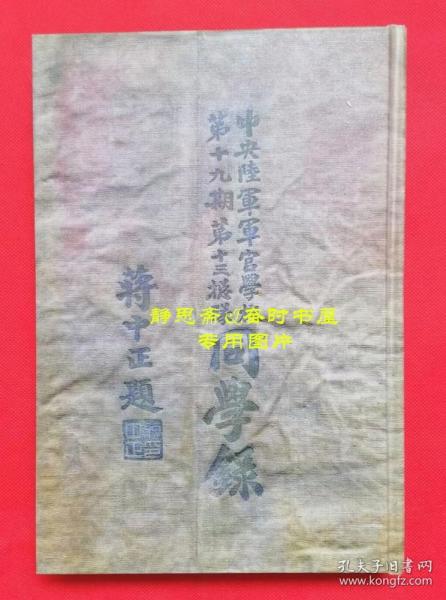 中央陸軍軍官學校
第十九期第十三總隊
同學錄
蔣中正題
静思斋&奋时书屋
专用图片
孔夫子旧书网
www.kongfz.com